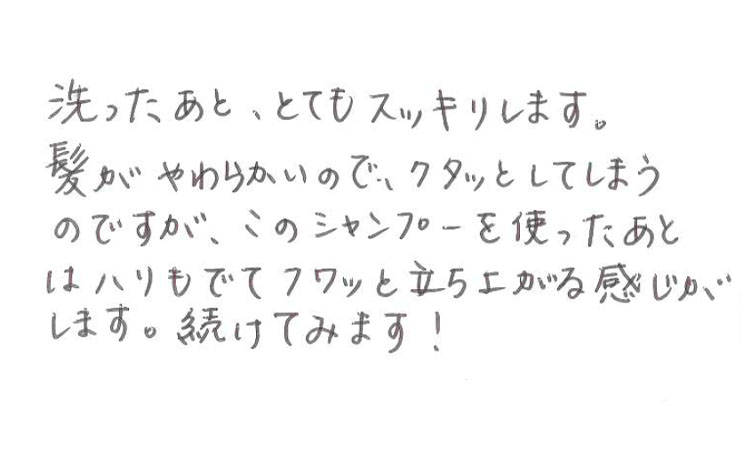 洗ったあと、とてもスッキリします。
髪がやわらかいので、クタッとしてしまう
のですが、このシャンプーを使ったあと
はハリもでてフワッと立ち上がる感じが
します。続けてみます！